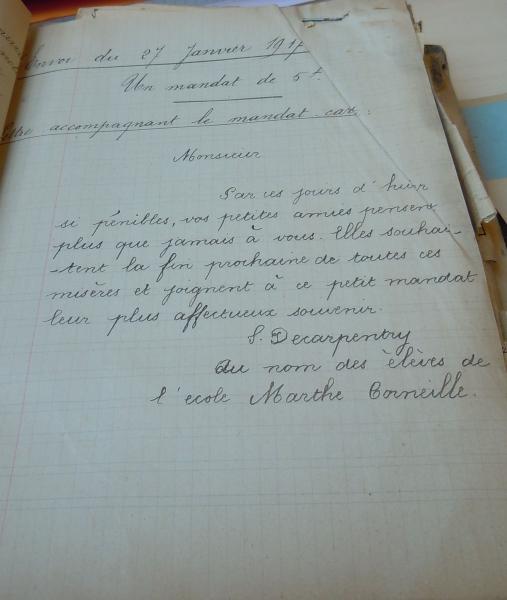 Envoi du 27 Janvier 1917
Un mandat de 5f.
accompagnant le mandat-carte.
Monsieur
Par ces jours d'hiver
si pénibles, vos petites amies pensent
plus que jamais à vous. Elles souhai-
-tent la fin prochaine de toutes ces
misères et joignent à ce petit mandat
leur plus affectueux souvenir.
S. Decarpentry
Au nom des élèves de
l'école Marthe Corneille.